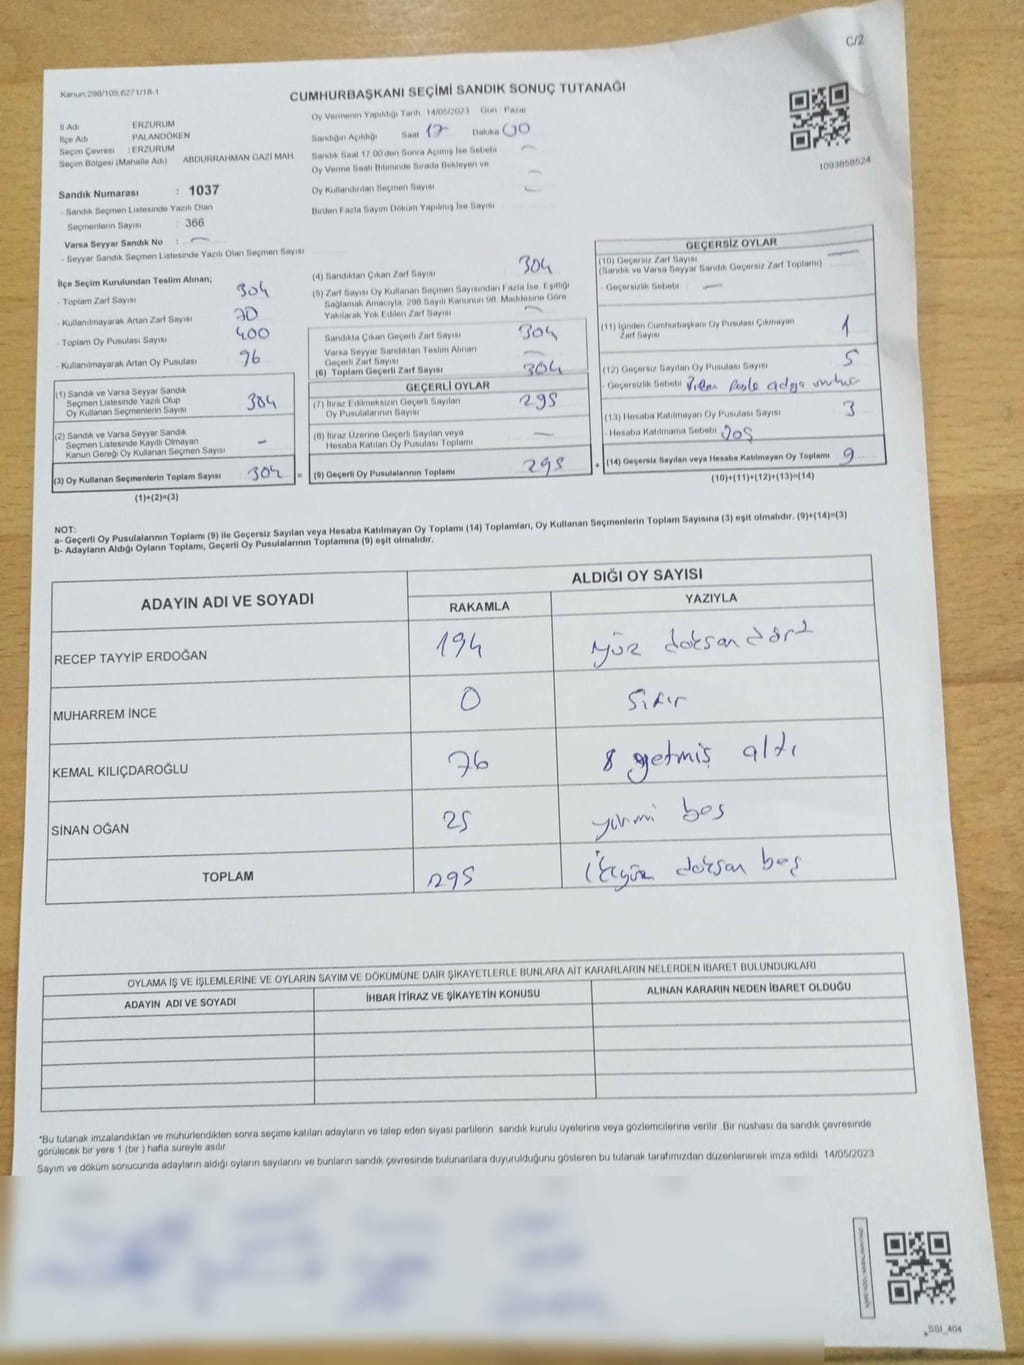 C/2
Kanun:298/105,6271/18-1
CUMHURBAŞKANI SEÇİMİ SANDIK SONUÇ TUTANAĞI
İl Adı : ERZURUM
İlçe Adı : PALANDÖKEN
Seçim Çevresi : ERZURUM
Seçim Bölgesi (Mahalle Adı) ABDURRAHMAN GAZİ MAH.
Sandık Numarası : 1037
- Sandık Seçmen Listesinde Yazılı Olan
Seçmenlerin Sayısı : 366
Varsa Seyyar Sandık No : -
- Seyyar Sandık Seçmen Listesinde Yazılı Olan Seçmen Sayısı
Oy Vermenin Yapıldığı Tarih 14/05/2023 Gün Pazar
Sandığın Açıldığı Saat 17 Dakika 00
Sandık Saat 17:00'den Sonra Açılmış İse Sebebi -
Oy Verme Saati Bitiminde Sırada Bekleyen ve
Oy Kullandırılan Seçmen Sayısı -
Birden Fazla Sayım Döküm Yapılmış İse Sayısı
1093858524
İlçe Seçim Kurulundan Teslim Alınan;
- Toplam Zarf Sayısı 304
- Kullanılmayarak Artan Zarf Sayısı 70
- Toplam Oy Pusulası Sayısı 400
- Kullanılmayarak Artan Oy Pusulası 96
(1) Sandık ve Varsa Seyyar Sandık
Seçmen Listesinde Yazılı Olup
Oy Kullanan Seçmenlerin Sayısı 304
(2) Sandık ve Varsa Seyyar Sandık
Seçmen Listesinde Kayıtlı Olmayan
Kanun Gereği Oy Kullanan Seçmen Sayısı -
(3) Oy Kullanan Seçmenlerin Toplam Sayısı 304 =
(1)+(2)=(3)
(4) Sandıktan Çıkan Zarf Sayısı 304
(5) Zarf Sayısı Oy Kullanan Seçmen Sayısından Fazla İse, Eşitliği
Sağlamak Amacıyla, 298 Sayılı Kanunun 98. Maddesine Göre
Yakılarak Yok Edilen Zarf Sayısı -
Sandıkta Çıkan Geçerli Zarf Sayısı 304
Varsa Seyyar Sandıktan Teslim Alınan
Geçerli Zarf Sayısı -
(6) Toplam Geçerli Zarf Sayısı 304
GEÇERLİ OYLAR
(7) İtiraz Edilmeksizin Geçerli Sayılan
Oy Pusulalarının Sayısı 295
(8) İtiraz Üzerine Geçerli Sayılan veya
Hesaba Katılan Oy Pusulası Toplamı -
(9) Geçerli Oy Pusulalarının Toplamı 295 +
GEÇERSİZ OYLAR
(10) Geçersiz Zarf Sayısı -
(Sandık ve Varsa Seyyar Sandık Geçersiz Zarf Toplamı)
- Geçersizlik Sebebi -
(11) İçinden Cumhurbaşkanı Oy Pusulası Çıkmayan
Zarf Sayısı 1
(12) Geçersiz Sayılan Oy Pusulası Sayısı 5
- Geçersizlik Sebebi
(13) Hesaba Katılmayan Oy Pusulası Sayısı 3
- Hesaba Katılmama Sebebi boş
(14) Geçersiz Sayılan veya Hesaba Katılmayan Oy Toplamı 9
(10)+(11)+(12)+(13)=(14)
NOT:
a- Geçerli Oy Pusulalarının Toplamı (9) ile Geçersiz Sayılan veya Hesaba Katılmayan Oy Toplamı (14) Toplamları, Oy Kullanan Seçmenlerin Toplam Sayısına (3) eşit olmalıdır. (9)+(14)=(3)
b- Adayların Aldığı Oyların Toplamı, Geçerli Oy Pusulalarının Toplamına (9) eşit olmalıdır.
ADAYIN ADI VE SOYADI
ALDIĞI OY SAYISI
RAKAMLA YAZIYLA
RECEP TAYYİP ERDOĞAN 194 yüz doksan dört
MUHARREM İNCE 0 Sıfır
KEMAL KILIÇDAROĞLU 76 yetmiş altı
SİNAN OĞAN 25 yirmi beş
TOPLAM 295 ikiyüz doksan beş
OYLAMA İŞ VE İŞLEMLERİNE VE OYLARIN SAYIM VE DÖKÜMÜNE DAİR ŞİKAYETLERLE BUNLARA AİT KARARLARIN NELERDEN İBARET BULUNDUKLARI
ADAYIN ADI VE SOYADI İHBAR İTİRAZ VE ŞİKAYETİN KONUSU ALINAN KARARIN NEDEN İBARET OLDUĞU
*Bu tutanak imzalandıktan ve mühürlendikten sonra seçime katılan adayların ve talep eden siyasi partilerin sandık kurulu üyelerine veya gözlemcilerine verilir .Bir nüshası da sandık çevresinde
görülecek bir yere 1 (bir ) hafta süreyle asılır
Sayım ve döküm sonucunda adayların aldığı oyların sayılarını ve bunların sandık çevresinde bulunanlara duyurulduğunu gösteren bu tutanak tarafımızdan düzenlenerek imza edildi. 14/05/2023
SSI_404